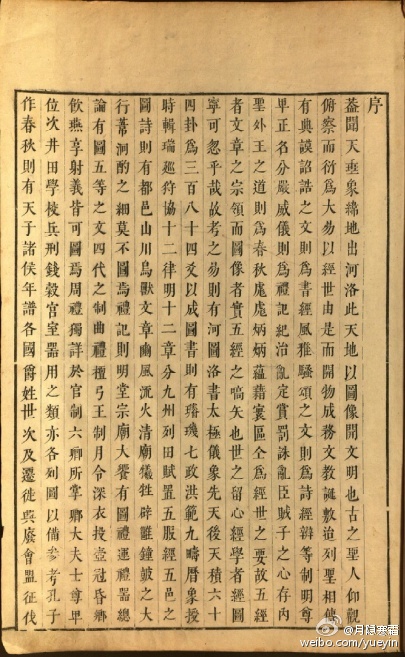 序
蓋聞天垂象緯地出河洛此天地以圖像開文明也古之聖人仰觀
俯察而衍為大易以經世由是而開物成務文教誕敷迨列聖相傳
有典謨誥誡之文則為書經風雅騷頌之文則為詩經辨等制明尊
卑正名分嚴威儀則為禮記紀治亂定賞罰誅亂臣賊子之心存內
聖外王之道則為春秋麃麃炳炳蘊藉寰區全為經世之要故五經
者文章之宗領而圖像者實五經之嚆矢也世之留心經學者經圖
寧可忽乎哉故考之易則有河圖洛書太極儀象先天後天積六十
四卦為三百八十四爻以成圖書則有璿璣七政洪範九疇曆象授
時輯瑞巡狩協十二律明十二章分九州列田賦置五服經五邑之
圖詩則有都邑山川鳥獸文章豳風流火清廟犧牲辟雝鐘鼓之大
行葦泂酌之細莫不圖焉禮記則明堂宗廟大饗有圖禮運禮器總
論有圖五等之文四代之制曲禮檀弓王制月令深衣投壺冠昏鄉
飲燕享射義皆可圖焉周禮獨詳於官制六卿所掌卿大夫士尊卑
位次井田學校兵刑錢穀宮室器用之類亦各列圖以備參考孔子
作春秋則有天子諸侯年譜各國爵姓世次及遷徙興廢會盟征伐
@月隐寒霜
weibo.com/yueyin